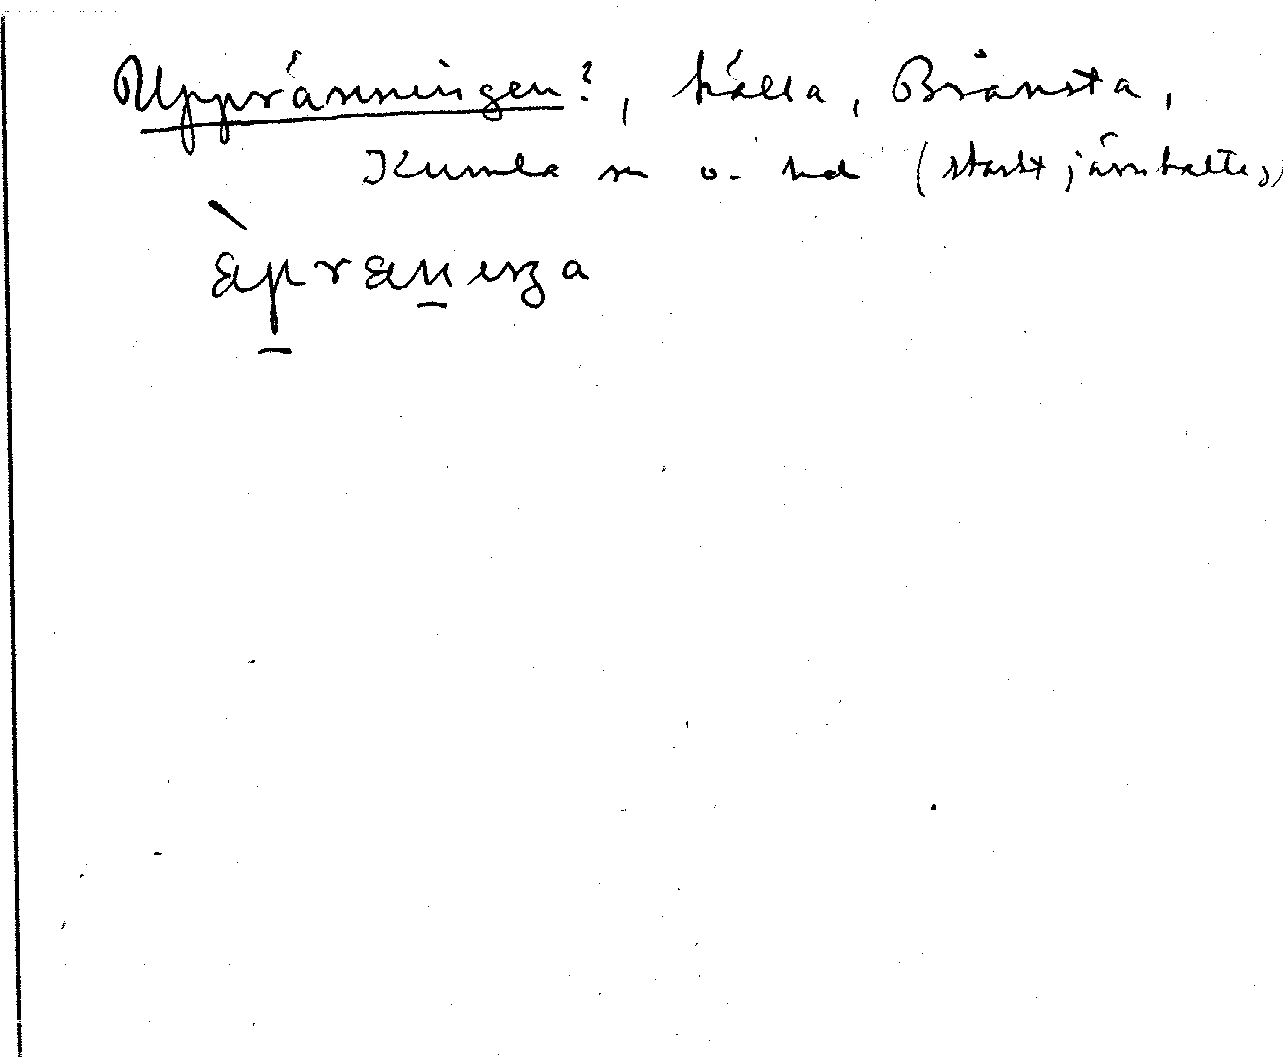 Uppränningen?, källa, Brånsta,
Kumla sn o. hd (starkt järnhaltig)